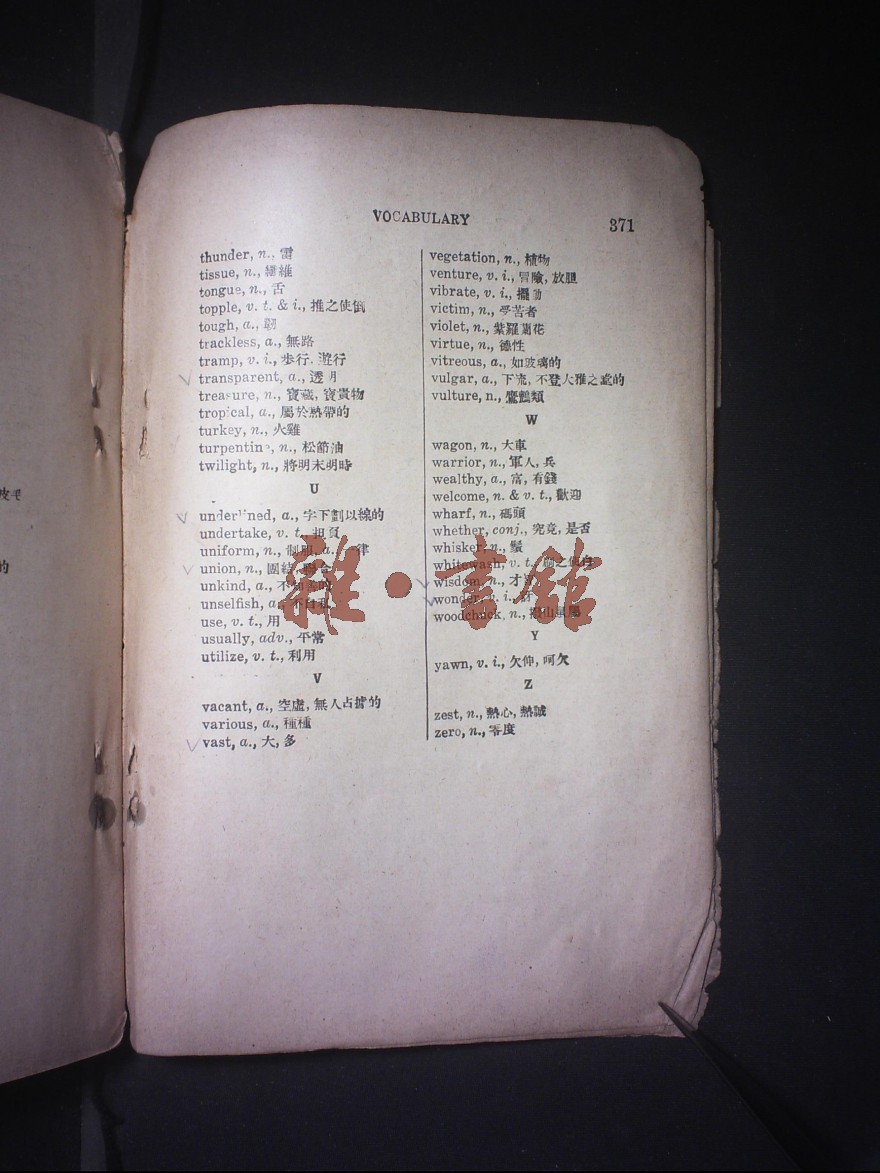 VOCABULARY
371
thunder, n., 雷
tissue, n., 纖維
tongue, n., 舌
topple, v. t. & i., 推之使倒
tough, a., 韌
trackless, a., 無路
tramp, v. i., 步行, 遊行
transparent, a., 透明
treasure, n., 寶藏, 寶貴物
tropical, a., 屬於熱帶的
turkey, n., 火雞
turpentine, n., 松節油
twilight, n., 將明未明時
U
underlined, a., 字下劃以線的
undertake, v. t., 担負
uniform, n., 制服, a., 一律
union, n., 團結, 聯合
unkind, a., 不
unselfish, a., 不自私
use, v. t., 用
usually, adv., 平常
utilize, v. t., 利用
V
vacant, a., 空虛, 無人占據的
various, a., 種種
vast, a., 大, 多
vegetation, n., 植物
venture, v. i., 冒險, 放胆
vibrate, v. i., 擺動
victim, n., 受苦者
violet, n., 紫羅蘭花
virtue, n., 德性
vitreous, a., 如玻璃的
vulgar, a., 下流, 不登大雅之處的
vulture, n., 鷹鷂類
W
wagon, n., 大車
warrior, n., 軍人, 兵
wealthy, a., 富, 有錢
welcome, n. & v. t., 歡迎
wharf, n., 碼頭
whether, conj., 究竟, 是否
whisker, n., 鬚
whitewash, v. t., 刷之使白
wisdom, n., 才
wonder, v. i.,
woodchuck, n.,
Y
yawn, v. i., 欠伸, 呵欠
Z
zest, n., 熱心, 熱誠
zero, n., 零度
皮毛
的
雜·書館